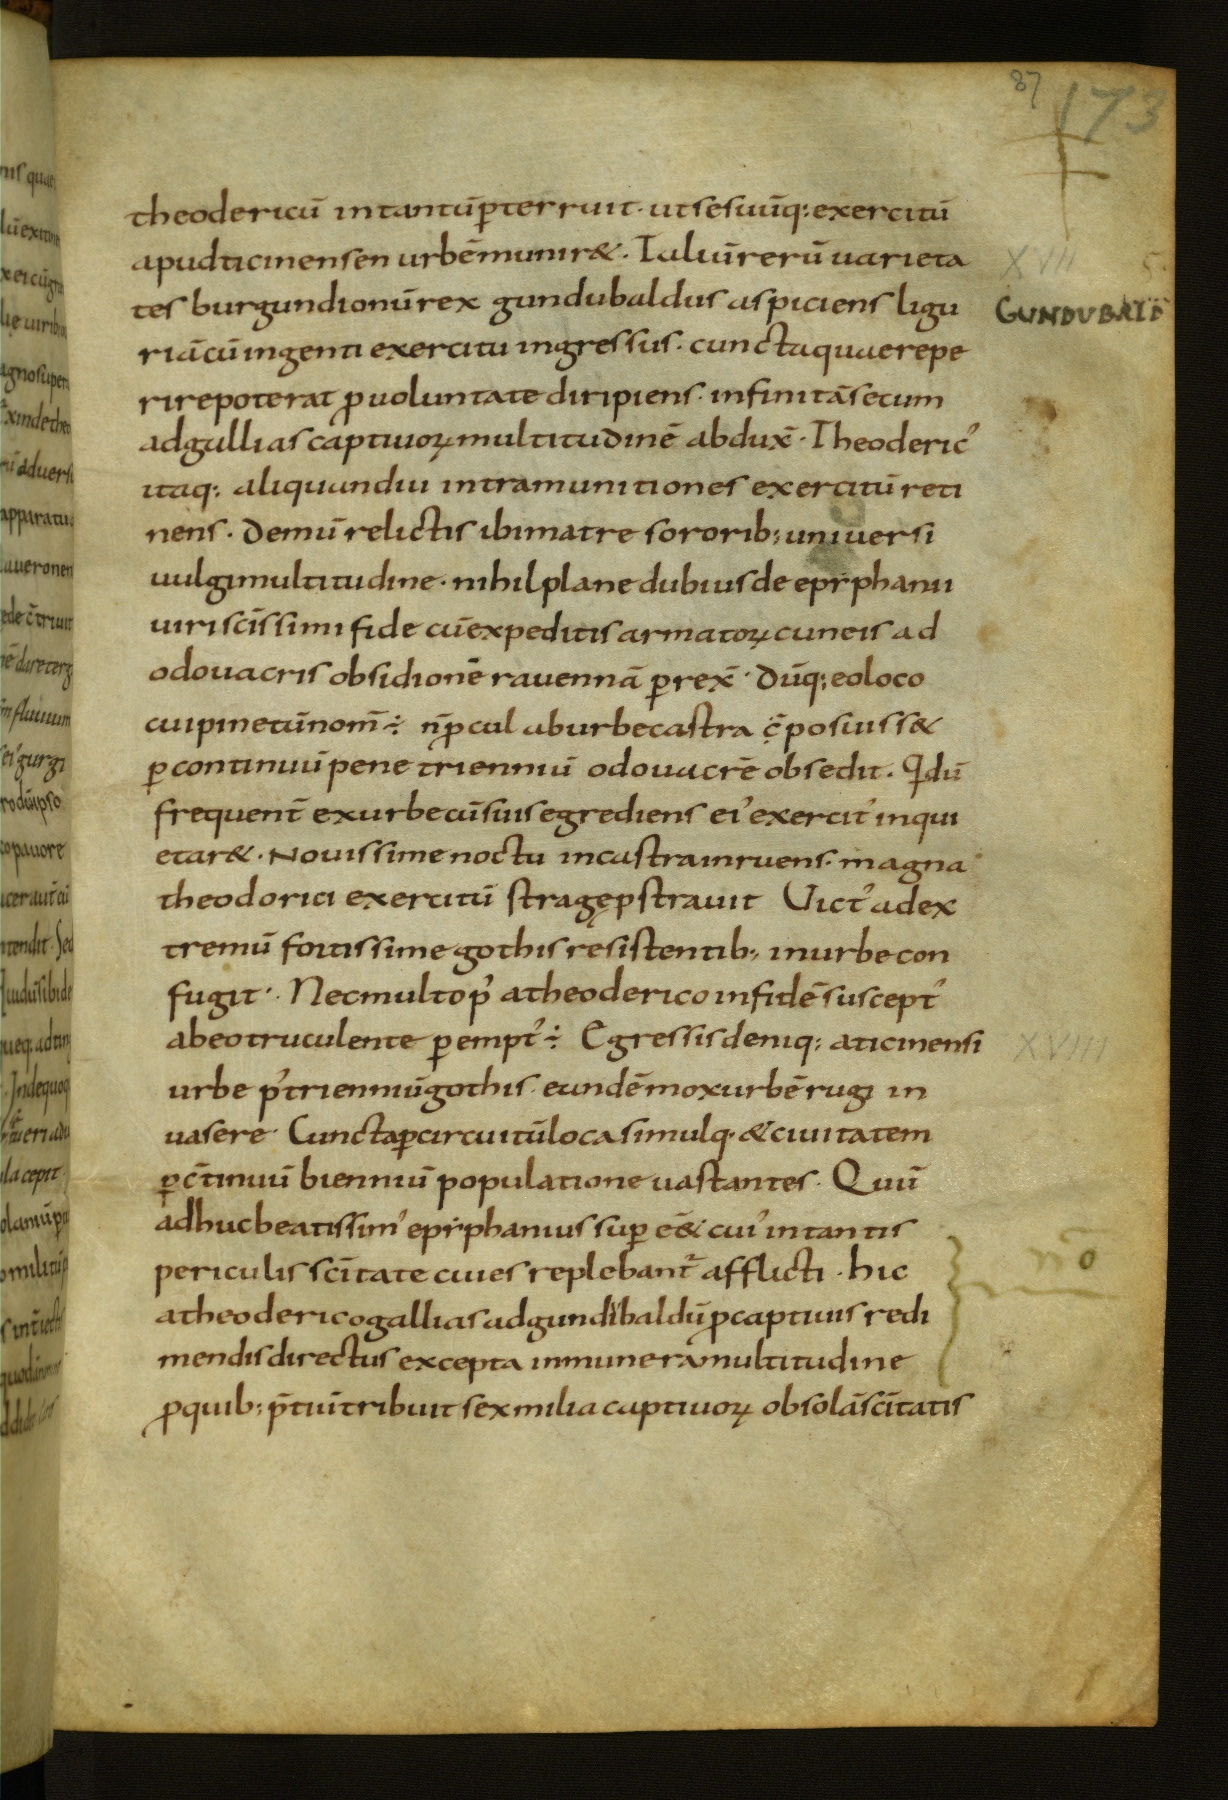 87
173
theodericū intantū ꝑterruit · ut se suūq; exercitū
apud ticinensen urbē munir& · Taliū rerū uarieta
XVII 5
tes burgundionū rex gundubaldus aspiciens ligu
GUNDUBALD
riā cū ingenti exercitu ingressus · cuncta quae repe
rire poterat ꝓ uoluntate diripiens · infinitā secum
ad gallias captiuoꝝ multitudinē abduxē · Theoderic'
itaq; aliquandiu intra munitiones exercitū reti
nens · demū relictis ibi matre sororib; uniuersi
uulgi multitudine · nihil plane dubius de epyphanii
uiri sc̄issimi fide cū expeditis armatoꝝ cuneis ad
odouacris obsidionē rauennā ꝑrex̄ · Dūq; eo loco
cui pinetū nom̄ ÷ n̄ ꝓcul ab urbe castra c̄posuiss&
ꝑ continuū pene trienniū odouacrē obsedit · Qdū
frequent̄ ex urbe cū suis egrediens ei' exercit' inqui
etar& · Nouissime noctu in castra inruens · magna
theodorici exercitū stragę ꝓstrauit Uict' ad ex
tremū fortissime gothis resistentib; in urbe con
fugit · Nec multo p' a theoderico in fidē suscept'
ab eo truculente ꝑempt' ÷ Egressis deniq; a ticinensi
XVIII
urbe p' trienniū gothis · eundē mox urbē rugi in
uasere · Cuncta ꝑ circuitū loca simulq; & ciuitatem
ꝑ c̄tinuū bienniū populatione uastantes · Quū
adhuc beatissim' epyphanius suꝑ eē& cui' in tantis
periculis sc̄itate ciues replebant̄ afflicti · hic
n̄o
a theoderico gallias ad gundibaldū ꝓ captiuis redi
mendis directus excepta inmunerā multitudine
ꝓ quib; p̄tiū tribuit sex milia captiuoꝝ ob solā sc̄itatis